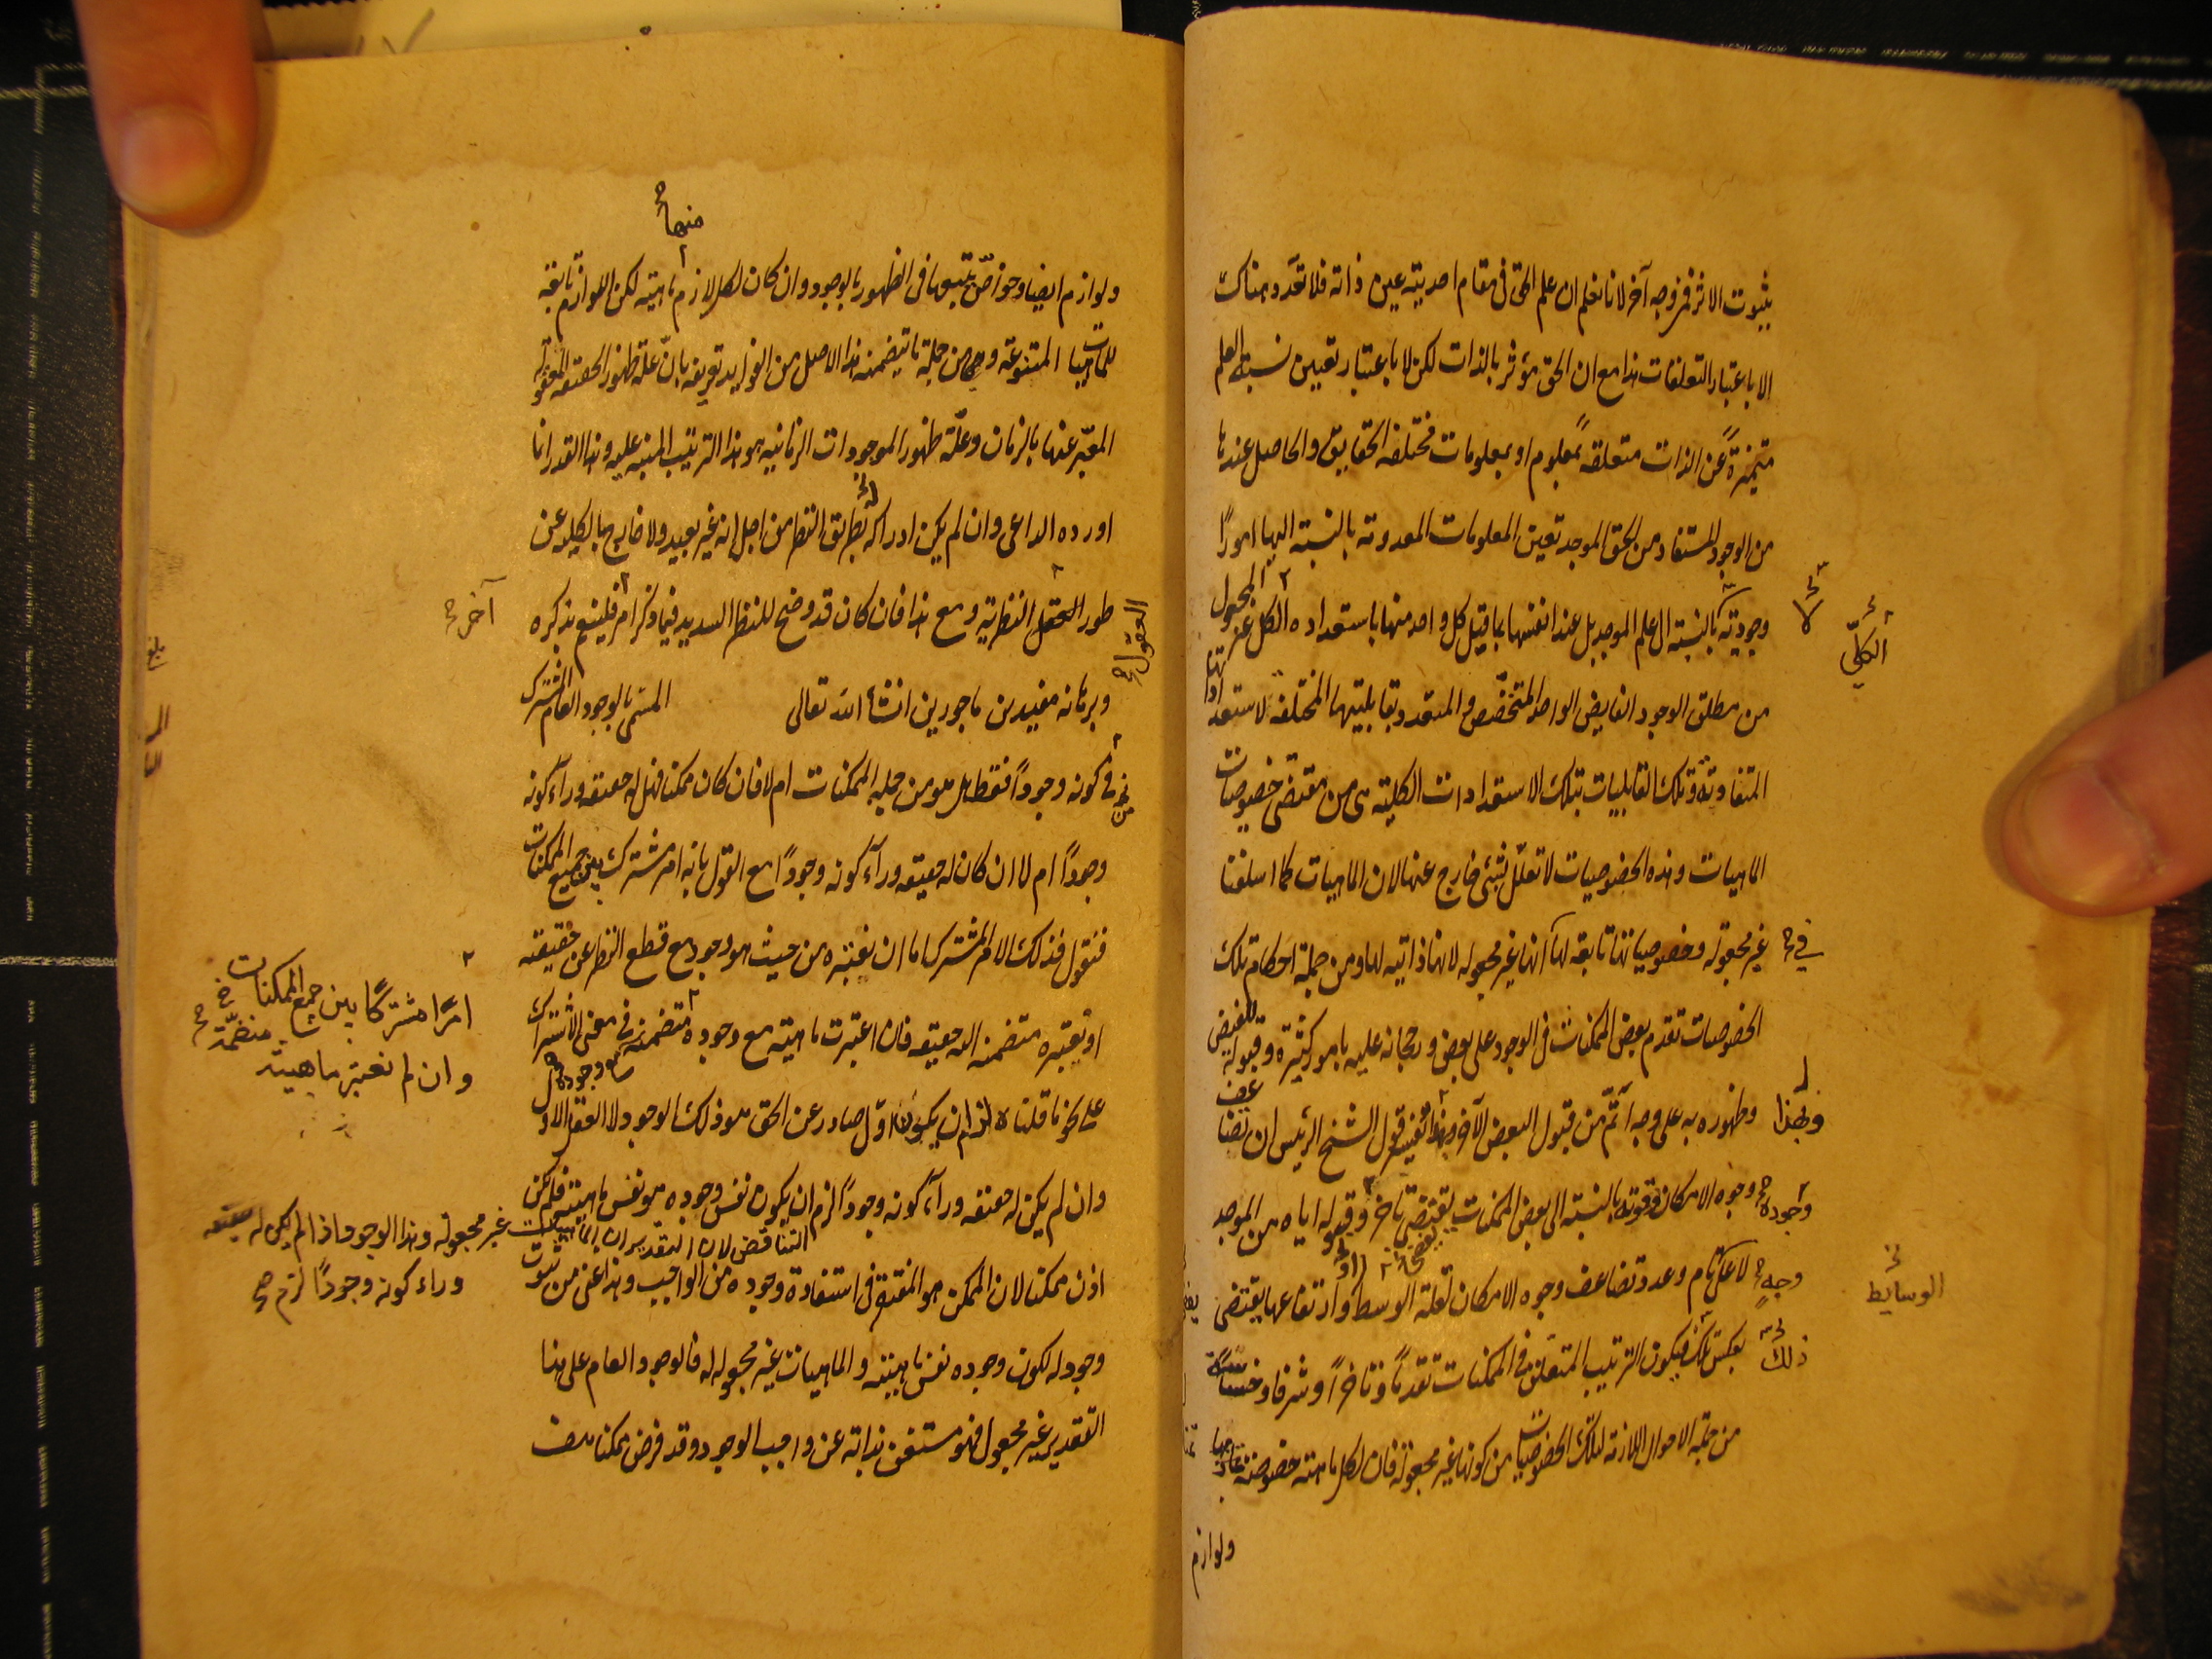 بثبوت الاثر فمن وجه آخر لانا نعلم ان علم الحق فى مقام احديته عين ذاته فلا تعدد هناك
الا باعتبار التعلقات هذا مع ان الحق مؤثر بالذات لكن لا باعتبار تعيين نسبة العلم
متميزة عن الذات متعلقه بمعلوم او بمعلومات مختلفه الحقايق والحاصل عندنا
من الوجود المستفاد من الحق الموجد تعين المعلومات المعدومة بالنسبة اليها امورًا
وجودية بالنسبة الى علم الموجد بل عند انفسها بما قبل كل واحد منها باستعداده الكل غير المجعول
لا
الكلّي
من مطلق الوجود الفايض الواحد المتخصّص والمتعدد بقابليتها المختلفه لاستعداداتها
المتفاوتة وتلك القابليات بتلك الاستعدادات الكلية هى من مقتضى خصوصيات
الماهيات وهذه الخصوصيات لا تعلل بشئ خارج عنها لان الماهيات كما اسلفنا
غير مجعوله وخصوصياتها تابعة لها انها غير مجعوله لانها ذاتيه لها ومن جملة احكام تلك
فى
الخصوصيات تقدم بعض الممكنات فى الوجود على بعض ورجحانه عليه بامور كثيرة وقبوله للفيض
وظهوره به على وجه اتم من قبول البعض الآخر وبهذا قول الشيخ الرئيس ان تضاعف
ولهذا
وجوه الامكان وقوته بالنسبة الى بعض الممكنات يقتضى تاخر وقبوله اياه من الموجد
وجوده
لا على تمام وعدد تضاعف وجوه الامكان لقلة الوسط وارتفاعها يقتضى
وجه
الوسايط
بعكس تلك فيكون الترتيب المتعلق فى الممكنات تقدمًا وتاخرًا وشرفا وخساسة
ذلك
من جملة الاحوال اللازمة لتلك الخصوصيات من كونها غير مجعولة فان لكل ماهية خصوصية
ولوازم
منها
ولوازم ايضا وخواصّ تتبعها فى الظهور بالوجود وان كان لكل لازم ماهية لكن اللوازم تابعة
للماهيات المتنوعة ومن جملة ما يتضمنه هذا الاصل من الفوايد تعريفه بان علة ظهور الحقيقة المعقولة
المعبّر عنها بالزمان وعلّة ظهور الموجودات الزمانيه هو هذا الترتيب المنبه عليه وهذا القدر انما
اورده الداعى وان لم يكن ادراكه بطريق النظر من اجل انه غير بعيد ولا خارج بالكلية عن
طور العقل النظرية ومع هذا فان كان قد وضح للنظر السديد فيما ذكر امر فلينعم بذكره
العقول
آخر
وبرهانه مفيدين ماجورين انشاء الله تعالى المسمى بالوجود العام المشترك
فى كونه وجودًا فقط هل هو من جملة الممكنات ام لا فان كان ممكنا فهل له حقيقه ورآء كونه
وجودًا ام لا ان كان له حقيقه ورآء كونه وجودًا مع القول بانه امر مشترك بين جميع الممكنات
فنقول فذلك الامر المشترك اما ان نعتبره من حيث هو وجود مع قطع النظر عن حقيقته
امرًا مشتركًا بين جميع الممكنات
وان لم نعتبر ماهيته
او نعتبره متضمنه الى حقيقه فان اعتبرت ماهيته مع وجوده متضمنة فى معنى الاشتراك
على نحو ما قلناه لزم ان يكون اول صادر عن الحق هو ذلك الوجود لا العقل الاول
وان لم يكن له حقيقه ورآء كونه وجودًا لزم ان يكون نفس وجوده هو نفس ماهيته فلم يكن
التناقض لان التقدير ان الماهيات غير مجعوله وهذا الوجود اذا لم يكن له حقيقه
وراء كونه وجودًا لزم صح
اذن ممكنا لان الممكن هو المفتقر فى استفادة وجوده من الواجب وهذا غنى من ثبوت
وجود له لكون وجوده نفس ماهيته والماهيات غير مجعوله له فالوجود العام على هذا
التقدير غير مجعول فهو مستغن بذاته عن واجب الوجود وقد فرض ممكنا هف